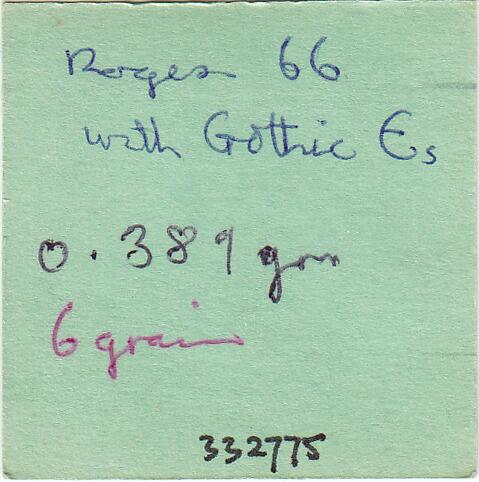 Rogers 66
with Gothic Es
0.389 gm
6 grain
332775